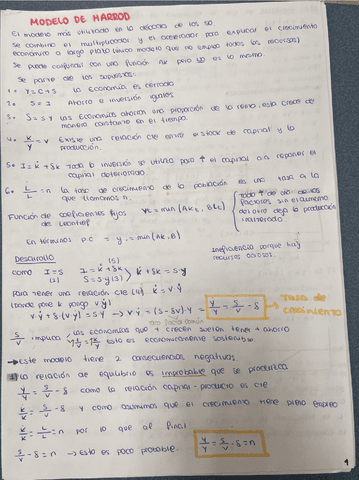 MODELO DE HARROD
El modelo más utilizado en la década de los 50
Se combina el multiplicador y el acelerador para explicar el crecimiento
económico a largo plazo (único modelo que no emplea todos los recursos)
Se puede confundir con una función AK pero NO es lo mismo
Se parte de los supuestos:
1. Y = C + S La economía es cerrada
2. S = I Ahorro e inversión iguales
3. S = s·Y Las economías ahorran una proporción de la renta, esta crece de
manera constante en el tiempo.
4. K/Y = v Existe una relación cte entre el stock de capital y la
producción.
5. I = K̇ + δK Toda la inversión se utiliza para ↑ el capital o a reponer el
capital deteriorado
6. L̇/L = n la tasa de crecimiento de la población es una tasa a la
que llamamos n.
Función de coeficientes fijos
de Leontief
Yt = min(AKt, BLt)
Todo ↑ de uno de los
factores sin el aumento
del otro deja la producción
inalterada
En términos p.c = y = min(Ak, B)
Ineficiencia porque hay
recursos ociosos.
Desarrollo
como I = S
(2)
(5)
I = K̇ + δK
S = s·Y (3)
K̇ + δK = s·Y
Para tener una relación cte (4) K̇ = v·Ẏ
(donde pone K pongo v·Y)
v·Ẏ + δ·(v·Y) = s·Y → v·Ẏ = (s - δv)·Y →
Ẏ/Y = s/v - δ
TASA de
CRECIMIENTO
s/v implica
Las economías que + crecen suelen tener + ahorro
esto es económicamente sostenible
→ Este modelo tiene 2 consecuencias negativas
1) La relación de equilibrio es improbable que se produzca
Ẏ/Y = s/v - δ como la relación capital-producto es cte
K̇/K = s/v - δ y como asumimos que el crecimiento tiene pleno empleo
K̇/K = L̇/L = n por lo que al final
s/v - δ = n → esto es poco probable.
Ẏ/Y = s/v - δ = n
1